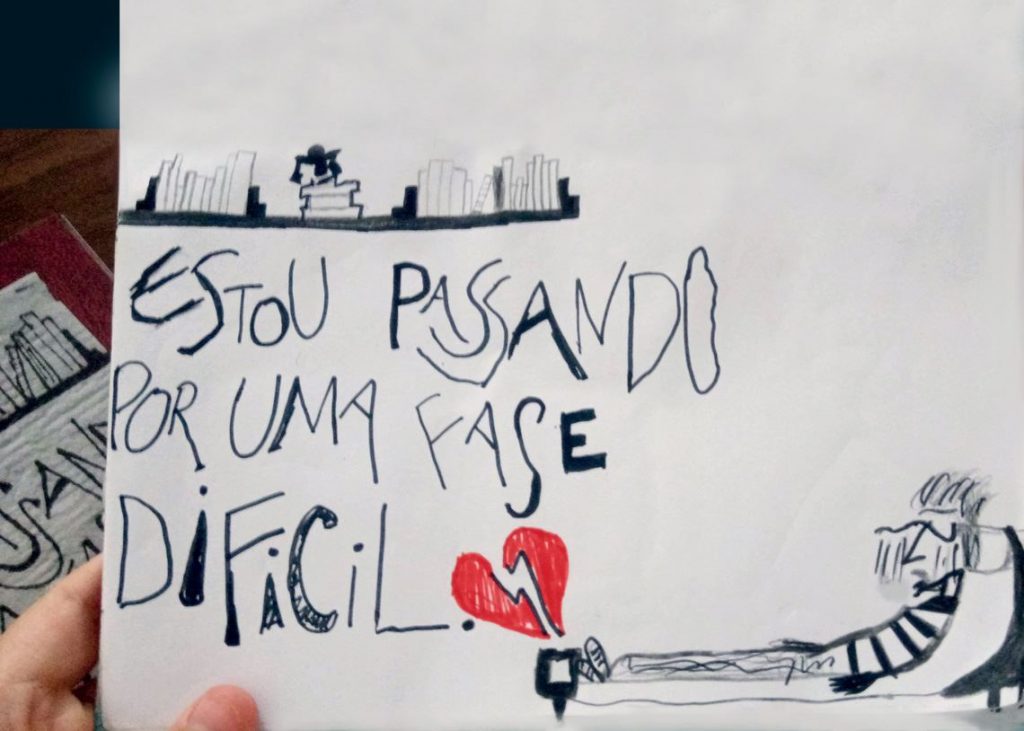 ESTOU PASSANDO
POR UMA FASE
DiFiCiL.